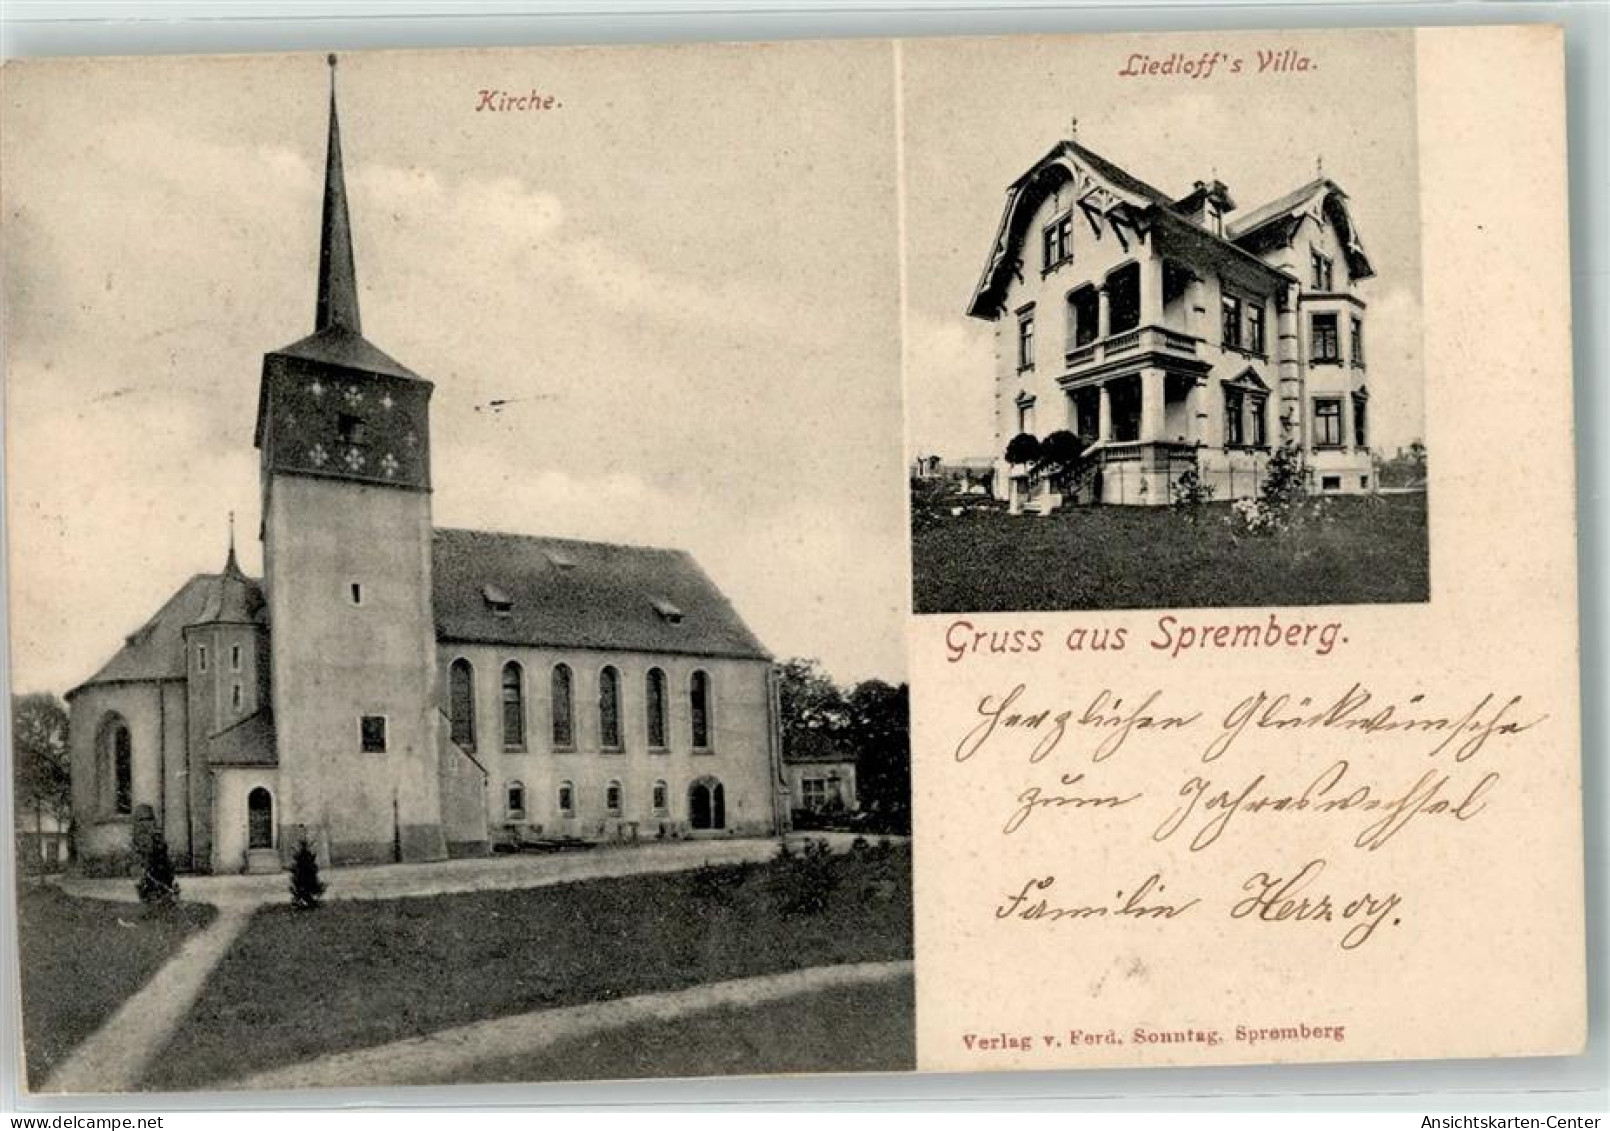 Kirche.
Liedloff's Villa.
Gruss aus Spremberg.
Herzlichen Glückwünsche
zum Jahreswechsel
Familie Herzog.
Verlag v. Ferd. Sonntag, Spremberg
Ansichtskarten-Center